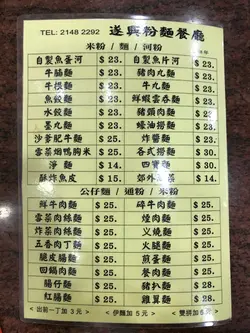 TEL: 2148 2292 遂興粉麵餐廳
米粉 / 麵 / 河粉
自製魚蛋河 $ 23. 自製魚片河 $ 23.
牛腩麵 $ 23. 豬肉丸麵 $ 23.
牛根麵 $ 23. 牛丸麵 $ 23.
魚餃麵 $ 23. 鮮蝦雲吞麵 $ 23.
水餃麵 $ 23. 豬頸肉麵 $ 23.
墨丸麵 $ 23. 蠔油撈麵 $ 23.
沙爹肥牛麵 $ 25. 炸醬麵 $ 23.
雪菜烟鴨胸米 $ 25. 各式撈麵 $ 30.
淨麵 $ 14. 四寶麵 $ 30.
酥炸魚皮 $ 15. 郊外油菜 $ 13.
公仔麵 / 通粉 / 米粉
鮮牛肉麵 $ 25. 碎牛肉麵 $ 25.
雪菜肉絲麵 $ 25. 煙肉麵 $ 25.
炸菜肉絲麵 $ 25. 叉燒麵 $ 25.
五香肉丁麵 $ 25. 火腿麵 $ 25.
脆皮腸麵 $ 25. 煎蛋麵 $ 25.
回鍋肉麵 $ 25. 餐肉麵 $ 25.
腸仔麵 $ 25. 豬扒麵 $ 28.
紅腸麵 $ 25. 雞翼麵 $ 28.
< 出前一丁加 3 元 > < 伊麵加 5 元 > < 雙拼加 5 元 >